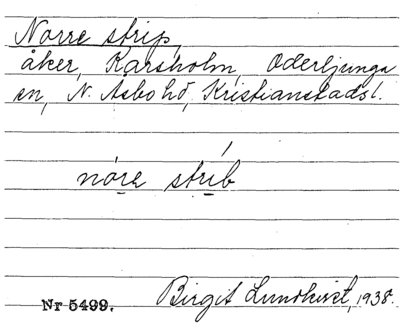 Norre strip,
åker, Karsholm, Oderljunga
sn, N. Åsbo hd, Kristianstads l.
nóre strib
Nr 5499.
Birgit Lundkvist, 1938.